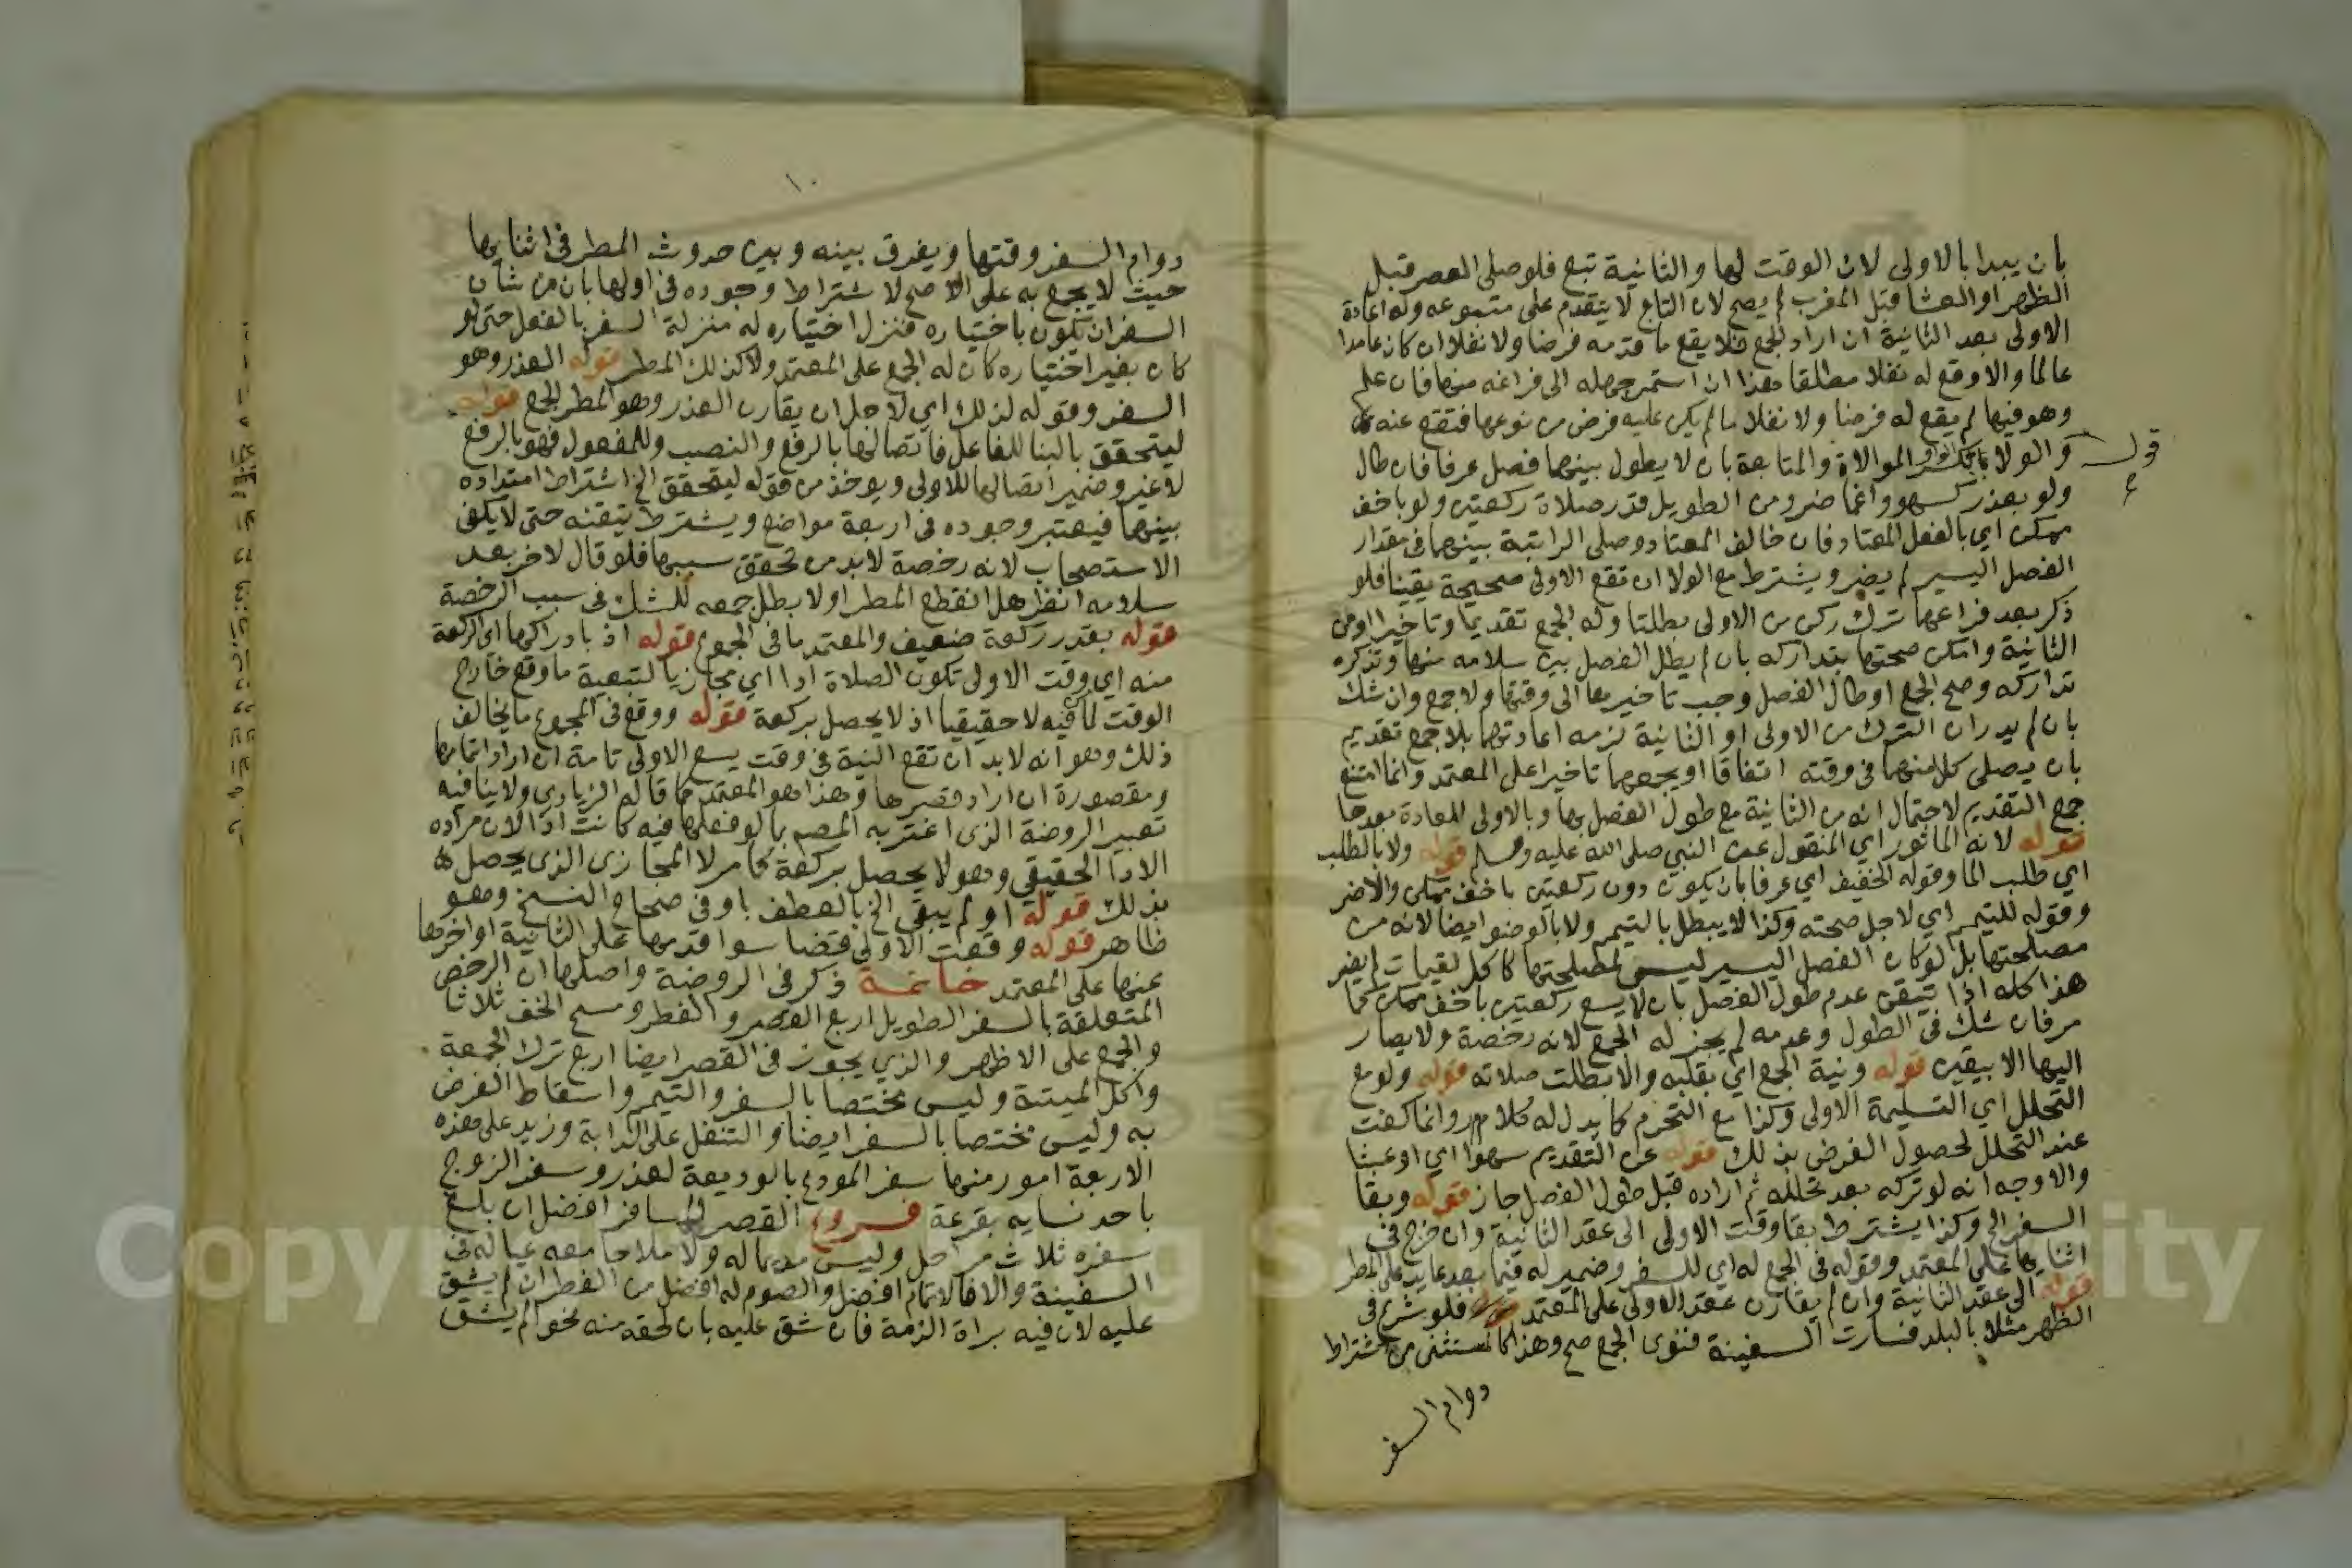 بان يبدا بالاولى لان الوقت لها والثانية تبع فلو صلى العصر قبل
الظهر او العشا قبل المغرب لم يصح لان التابع لا يتقدم على متبوعه وله اعادة
الاولى بعد الثانية ان اراد الجمع فلا يقع ما قدمه فرضا ولا نفلا ان كان عامدا
عالما والا وقع له نفلا مطلقا هذا ان استمر جهله الى فراغه منها فان علم
وهو فيها لم يقع له فرضا ولا نفلا ما لم يكن عليه فرض من نوعها فتقع عنه
قوله
والولا بكسر الواو الموالاة والمتابعة بان لا يطول بينهما فصل عرفا فان طال
ولو بعذر كسهو واغما ضر ومن الطويل قدر صلاة ركعتين ولو باخف
ممكن اي بالفعل المعتاد فان خالف المعتاد وصلى الراتبة بينهما في مقدار
الفصل اليسير لم يضر ويشترط مع الولا ان تقع الاولى صحيحة يقينا فلو
ذكر بعد فراغهما ترك ركن من الاولى بطلتا وله الجمع تقديما وتاخيرا او من
الثانية وامكن صحتها بتداركه بان لم يطل الفصل بين سلامه منها وتذكره
تداركه وصح الجمع او طال الفصل وجب تاخيرها الى وقتها ولا جمع وان شك
بان لم يدر ان الترك من الاولى او الثانية لزمه اعادتهما بلا جمع تقديم
بان يصلى كل منهما في وقته اتفاقا او يجمعهما تاخيرا على المعتمد وانما امتنع
جمع التقديم لاحتمال انه من الثانية مع طول الفصل بها وبالاولى المعادة بعدها
قوله لانه الماثور اي المنقول عن النبي صلى الله عليه وسلم قوله ولا بالطلب
اي طلب الما وقوله الخفيف اي عرفا بان يكون دون ركعتين باخف ممكن والا ضر
وقوله للتيمم اي لاجل صحته وكذا لا يبطل بالتيمم ولا بالوضو ايضا لانه من
مصلحتها بل لو كان الفصل اليسير ليس لمصلحتها كاكل لقيمات لم يضر
هذا كله اذا تيقن عدم طول الفصل بان لا يسع ركعتين باخف ممكن كما
مر فان شك في الطول وعدمه لم يجز له الجمع لانه رخصة ولا يصار
اليها الا بيقين قوله ونية الجمع اي بقلبه والا بطلت صلاته قوله ولو مع
التحلل اي التسليمة الاولى وكذا مع التحرم كما يدل له كلام مر وانما كفت
عند التحلل لحصول الغرض بذلك قوله عن التقديم سهوا اي او عبثا
والاوجه انه لو تركه بعد تحلله ثم اراده قبل طول الفصل جاز قوله وبقا
السفر الخ وكذا يشترط بقا وقت الاولى الى عقد الثانية وان خرج في
اثنايها على المعتمد وقوله في الجمع له اي للسفر وضمير له فيما بعد عايد على المطر
قوله الى عقد الثانية وان لم يقارن عقد الاولى على المعتمد قوله فلو شرع في
الظهر مثلا بالبلد فسارت السفينة فنوى الجمع صح وهذا كالمستثنى من اشتراط
دوام السفر
١٠
دوام السفر وقتها ويفرق بينه وبين حدوث المطر في اثنايها
حيث لا يجمع به على الاصح لاشتراط وجوده في اولها بان من شان
السفر ان تكون باختياره فنزل اختياره له منزلة السفر بالفعل حتى لو
كان بغير اختياره كان له الجمع على المعتمد ولا كذلك المطر قوله العذر وهو
السفر وقوله لذلك اي لاجل ان يقارن العذر وهو المطر الجمع قوله
ليتحقق بالبنا للفاعل فاتصالها بالرفع والنصب وللمفعول فهو بالرفع
لا غير وضمير اتصالها للاولى ويوخذ من قوله ليتحقق الخ اشتراط امتداده
بينهما فيعتبر وجوده في اربعة مواضع ويشترط تيقنه حتى لا يكفى
الاستصحاب لانه رخصة لابد من تحقق سببها فلو قال لاخر بعد
سلامه انظر هل انقطع المطر او لا بطل جمعه للشك في سبب الرخصة
قوله بقدر ركعة ضعيف والمعتمد ما في المجموع قوله اذ بادراكها اي الركعة
منه اي وقت الاولى تكون الصلاة ادا اي مجازيا لتبعية ما وقع خارج
الوقت لما فيه لا حقيقيا اذ لا يحصل بركعة قوله ووقع في المجموع ما يخالف
ذلك وهو انه لابد ان تقع النية في وقت يسع الاولى تامة ان اراد اتمامها
ومقصورة ان اراد قصرها وهذا هو المعتمد كما قاله الزيادي ولا ينافيه
تعبير الروضة الذي اغتر به المصم بما لو فعلها فيه كانت ادا لان مراده
الادا الحقيقي وهو لا يحصل بركعة كما مر لا المجازي الذي يحصل
بذلك قوله او لم يبقى الخ بالعطف باو في صحاح النسخ وهو
ظاهر قوله وقعت الاولى قضا سوا قدمها على الثانية او اخرها
عنها على المعتمد خاتمة ذكر في الروضة واصلها ان الرخص
المتعلقة بالسفر الطويل اربع القصر والفطر ومسح الخف ثلاثا
والجمع على الاظهر والذي يجوز في القصر ايضا اربع ترك الجمعة
واكل الميتة وليس مختصا بالسفر والتيمم واسقاط الفرض
به وليس مختصا بالسفر ايضا والتنفل على الدابة وزيد على هذه
الاربعة امور منها سفر المودع بالوديعة لعذر وسفر الزوج
باحد نسايه بقرعة فروع القصر للمسافر افضل ان بلغ
سفره ثلاث مراحل وليس مديما له ولا ملاحا معه عياله في
السفينة والا فالاتمام افضل والصوم له افضل من الفطر ان لم يشق
عليه لان فيه براة الذمة فان شق عليه بان لحقه منه نحو الم يشق